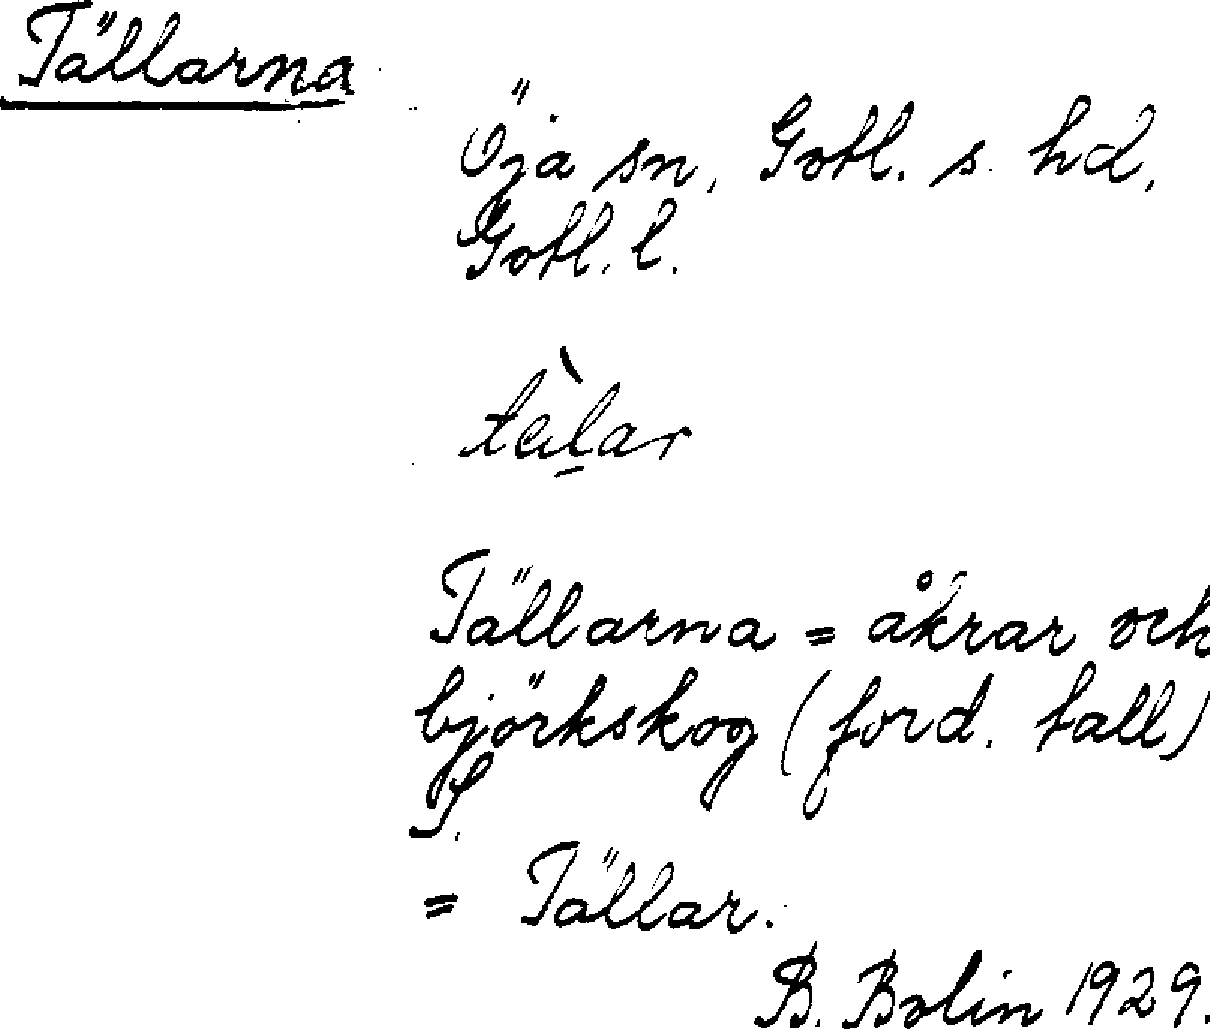 Tällarna
Öja sn, Gotl. s. hd,
Gotl. l.
tälar
Tällarna = åkrar och
björkskog (ford. tall)
S.
= Tällar.
B. Bolin 1929.